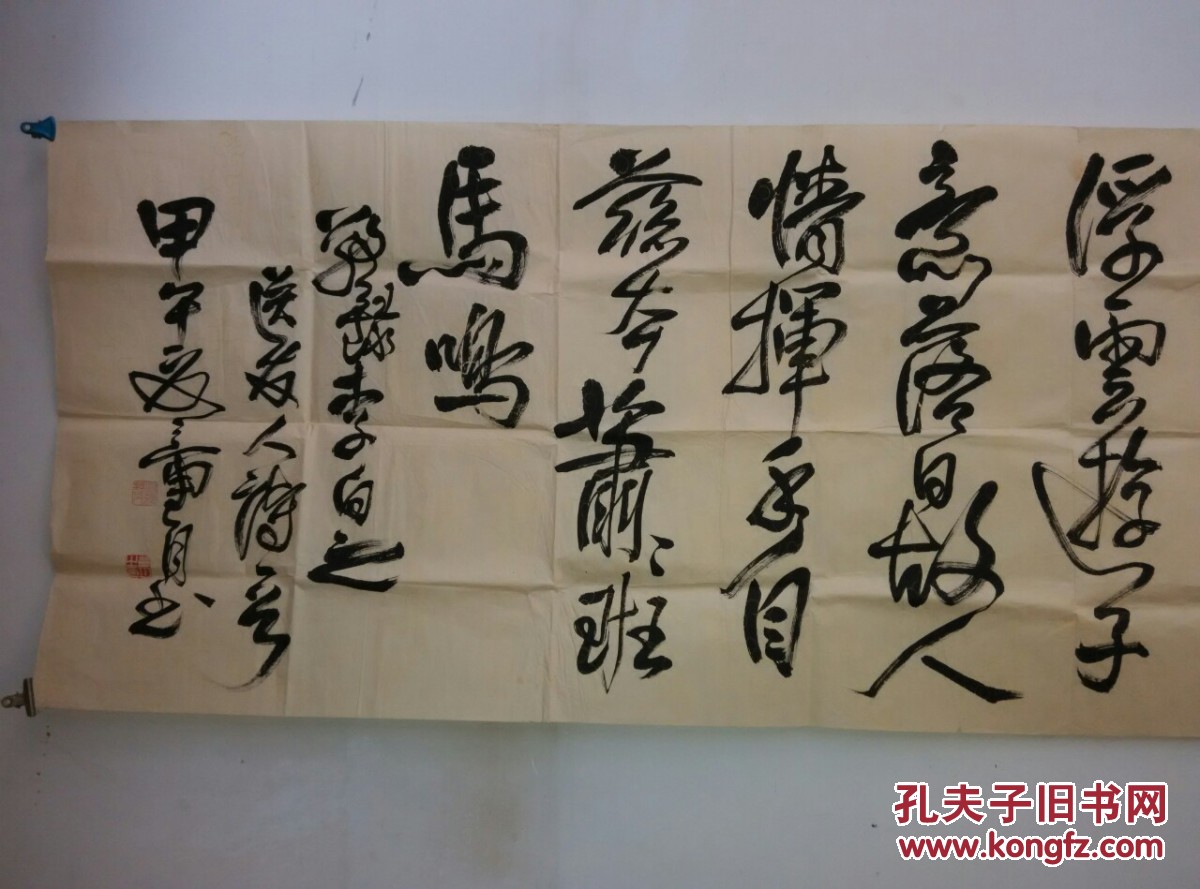 浮雲遊子
意落日故人
情揮手自
茲去蕭〻班
馬鳴
錄李白之
送友人詩
甲午夏
孔夫子旧书网
www.kongfz.com